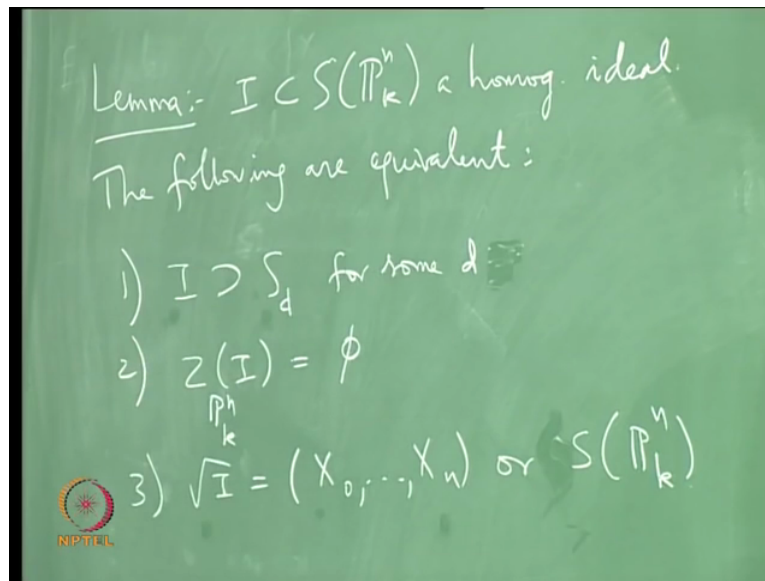 Lemma:- I ⊂ S(ℙⁿₖ) a homog. ideal.
The following are equivalent:
1) I ⊃ S_d for some d
2) Z(I) = φ
ℙⁿₖ
3) √I = (X₀,...,Xₙ) or S(ℙⁿₖ)
NPTEL